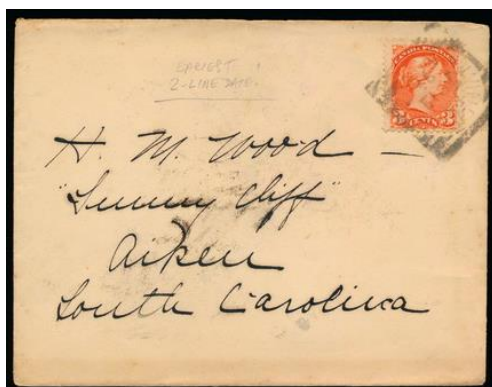 EARLIEST
2-LINE DATE.
CANADA POSTAGE
3 CENTS 3
H. M. Wood —
"Sunny Cliff"
Aiken
South Carolina